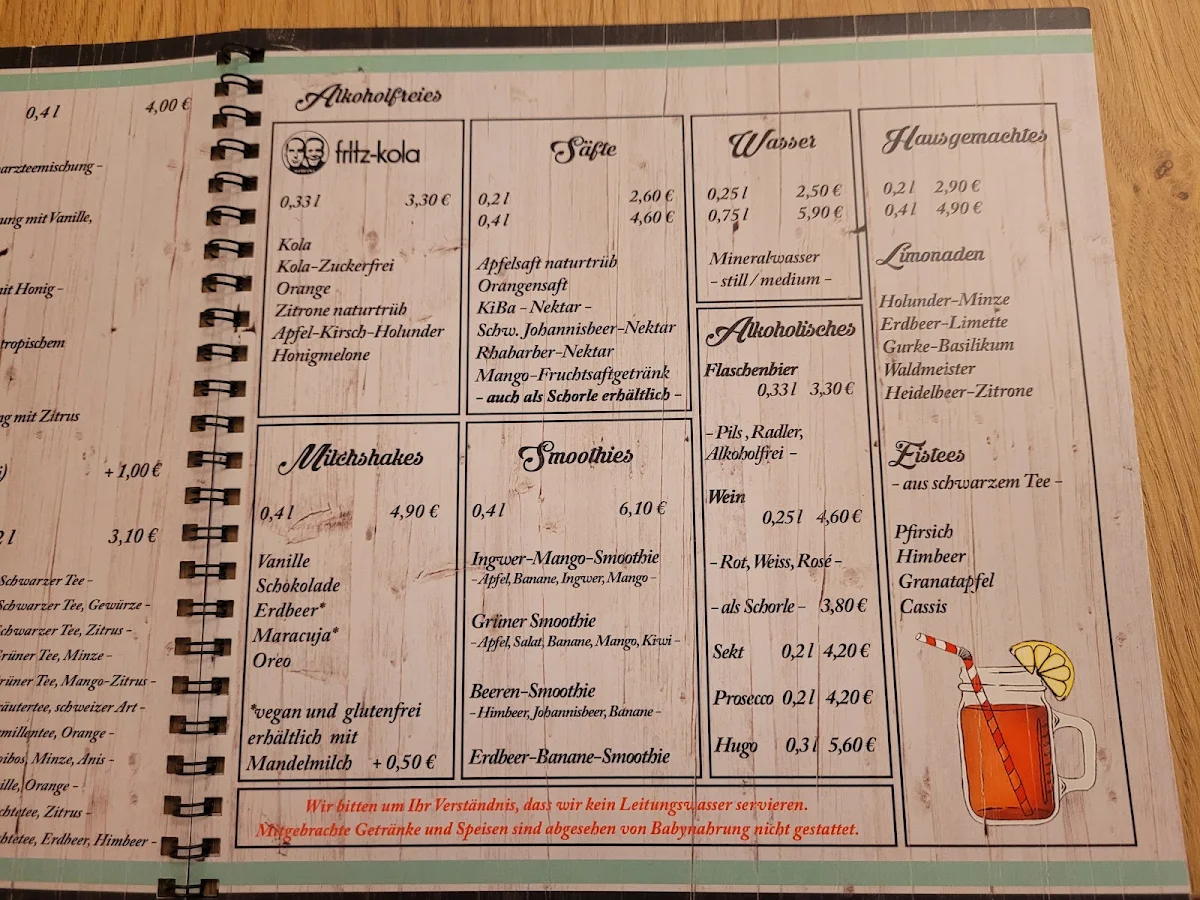 0,4 l 4,00 €
arzteemischung -
ung mit Vanille,
it Honig -
tropischem
ng mit Zitrus
+ 1,00 €
2 l 3,10 €
Schwarzer Tee -
Schwarzer Tee, Gewürze -
chwarzer Tee, Zitrus -
rüner Tee, Minze -
rüner Tee, Mango-Zitrus -
äutertee, schweizer Art -
millentee, Orange -
oibos, Minze, Anis -
ille, Orange -
chtetee, Zitrus -
chtetee, Erdbeer, Himbeer -
Alkoholfreies
fritz-kola
0,33 l 3,30 €
Kola
Kola-Zuckerfrei
Orange
Zitrone naturtrüb
Apfel-Kirsch-Holunder
Honigmelone
Säfte
0,2 l 2,60 €
0,4 l 4,60 €
Apfelsaft naturtrüb
Orangensaft
KiBa - Nektar -
Schw. Johannisbeer-Nektar
Rhabarber-Nektar
Mango-Fruchtsaftgetränk
- auch als Schorle erhältlich -
Wasser
0,25 l 2,50 €
0,75 l 5,90 €
Mineralwasser
- still / medium -
Hausgemachtes
0,2 l 2,90 €
0,4 l 4,90 €
Limonaden
Holunder-Minze
Erdbeer-Limette
Gurke-Basilikum
Waldmeister
Heidelbeer-Zitrone
Eistees
- aus schwarzem Tee -
Pfirsich
Himbeer
Granatapfel
Cassis
Milchshakes
0,4 l 4,90 €
Vanille
Schokolade
Erdbeer*
Maracuja*
Oreo
*vegan und glutenfrei
erhältlich mit
Mandelmilch + 0,50 €
Smoothies
0,4 l 6,10 €
Ingwer-Mango-Smoothie
- Apfel, Banane, Ingwer, Mango -
Grüner Smoothie
- Apfel, Salat, Banane, Mango, Kiwi -
Beeren-Smoothie
- Himbeer, Johannisbeer, Banane -
Erdbeer-Banane-Smoothie
Alkoholisches
Flaschenbier
0,33 l 3,30 €
- Pils , Radler,
Alkoholfrei -
Wein
0,25 l 4,60 €
- Rot, Weiss, Rosé -
- als Schorle - 3,80 €
Sekt 0,2 l 4,20 €
Prosecco 0,2 l 4,20 €
Hugo 0,3 l 5,60 €
Wir bitten um Ihr Verständnis, dass wir kein Leitungswasser servieren.
Mitgebrachte Getränke und Speisen sind abgesehen von Babynahrung nicht gestattet.